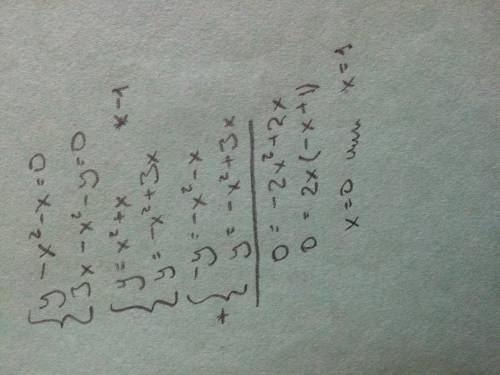 { y - x² - x = 0
{ 3x - x² - y = 0
{ y = x² + x   * -1
{ y = -x² + 3x
+ { -y = -x² - x
{ y = -x² + 3x
0 = -2x² + 2x
0 = 2x(-x + 1)
x = 0 или x = 1